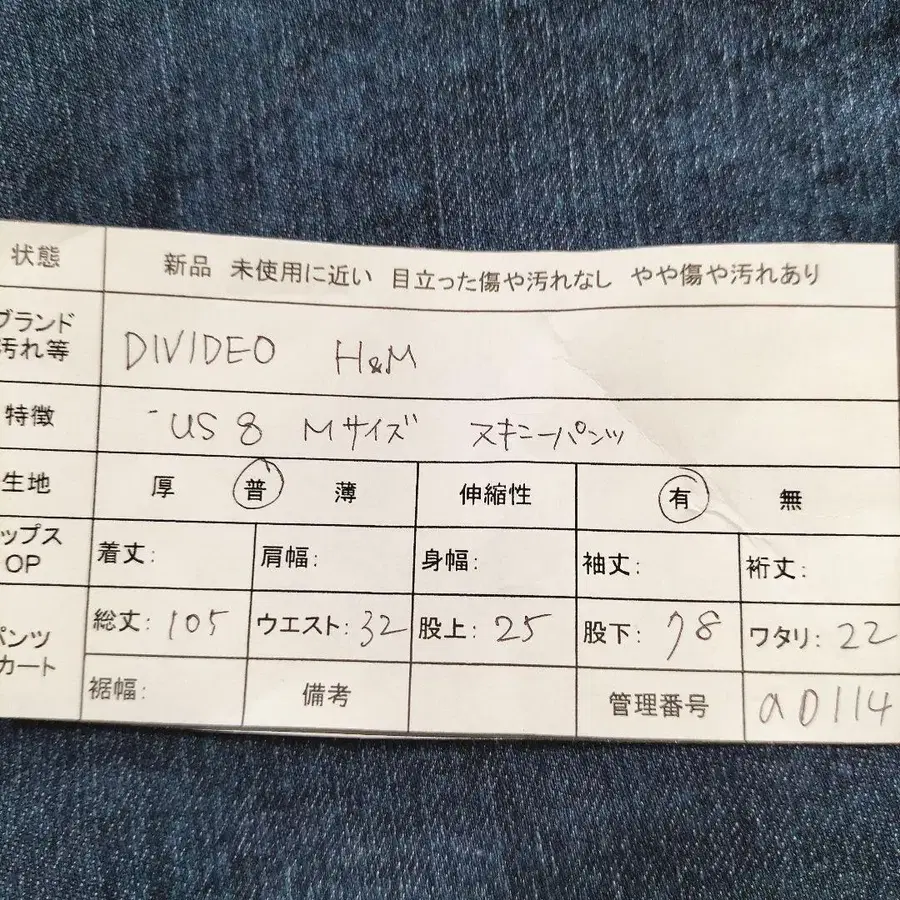 状態 新品 未使用に近い 目立った傷や汚れなし やや傷や汚れあり
ブランド
汚れ等 DIVIDEO H&M
特徴 US 8 Mサイズ スキニーパンツ
生地 厚 普 薄 伸縮性 有 無
ップス
OP 着丈: 肩幅: 身幅: 袖丈: 裄丈:
パンツ
カート 総丈: 105 ウエスト: 32 股上: 25 股下: 78 ワタリ: 22
裾幅: 備考 管理番号 aD114